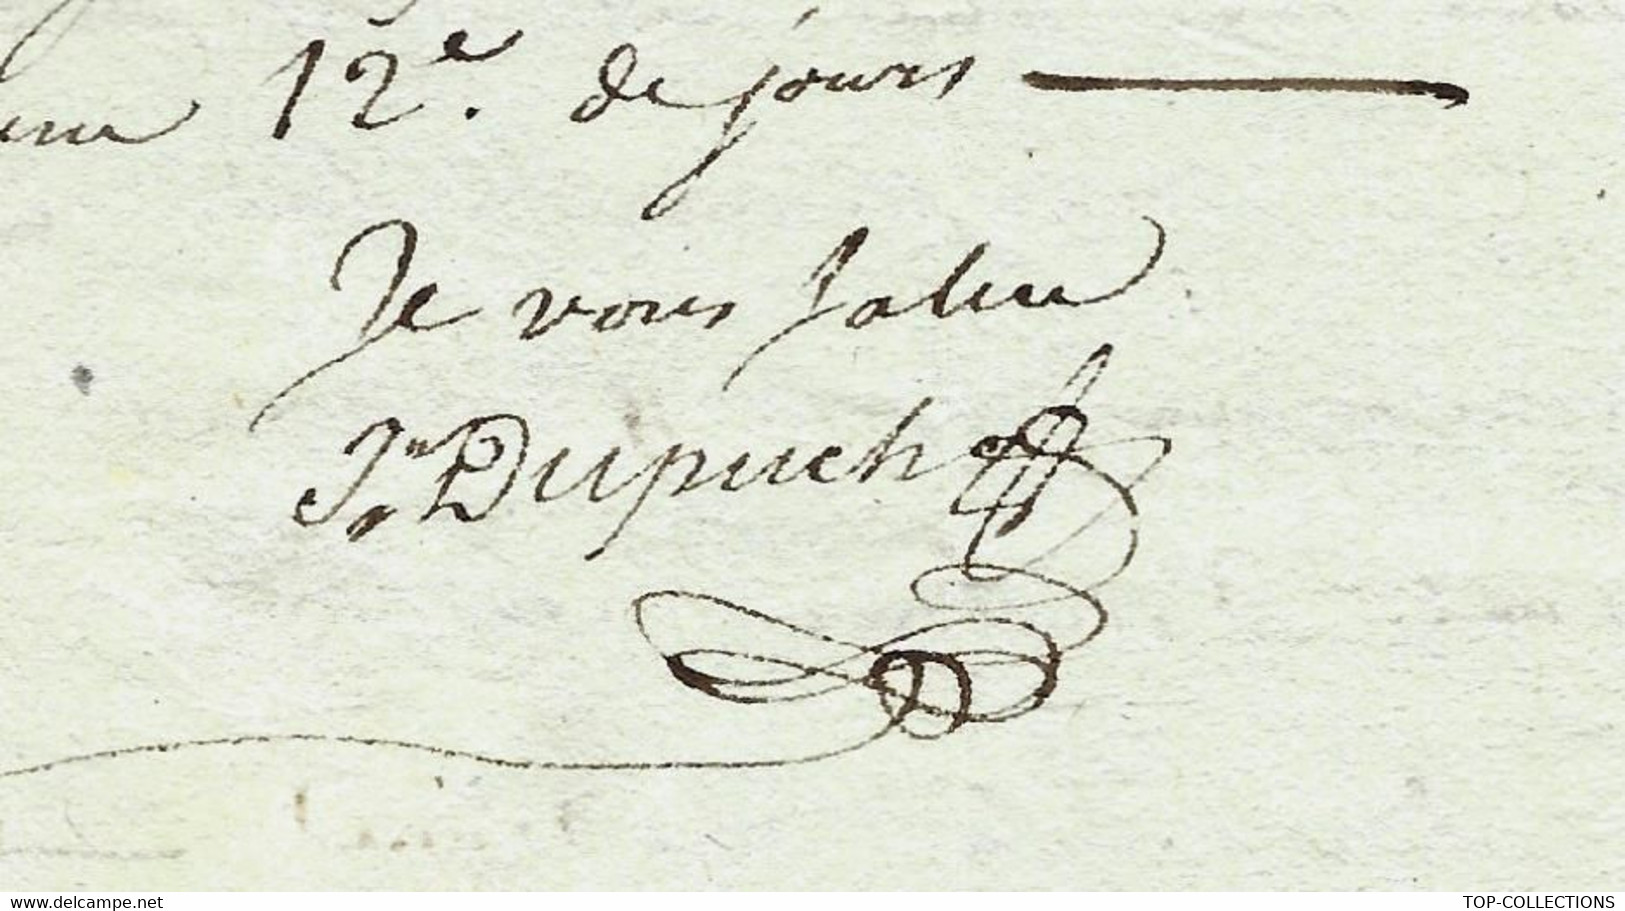 12e. de jours
Je vous salue
Jn Dupuch
www.delcampe.net
TOP-COLLECTIONS